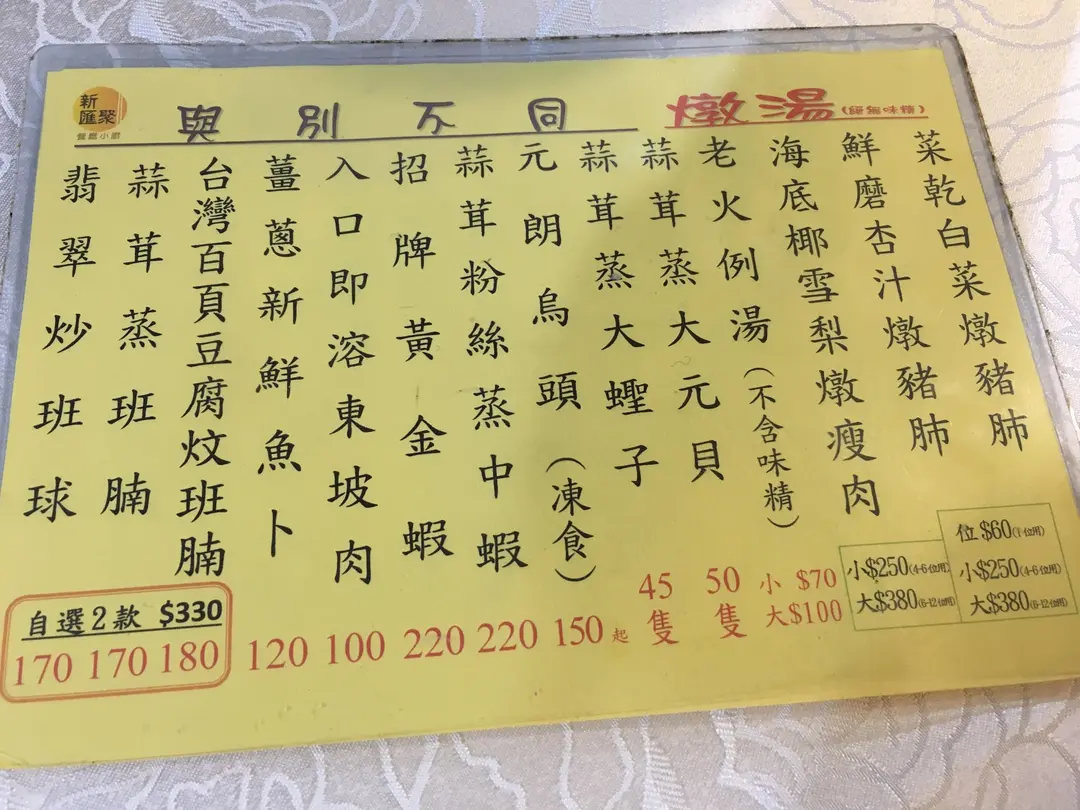 新匯聚
與別不同
燉湯(絕無味精)
菜乾白菜燉豬肺
鮮磨杏汁燉豬肺
位$60(1位用)
小$250(4-6位用)
大$380(6-12位用)
海底椰雪梨燉瘦肉
小$250(4-6位用)
大$380(6-12位用)
老火例湯(不含味精)
小 $70
大$100
蒜茸蒸大元貝
50隻
蒜茸蒸大蟶子
45隻
元朗烏頭(凍食)
150起
蒜茸粉絲蒸中蝦
220
招牌黃金蝦
220
入口即溶東坡肉
100
薑蔥新鮮魚卜
120
台灣百頁豆腐炆班腩
180
蒜茸蒸班腩
170
翡翠炒班球
170
自選2款 $330